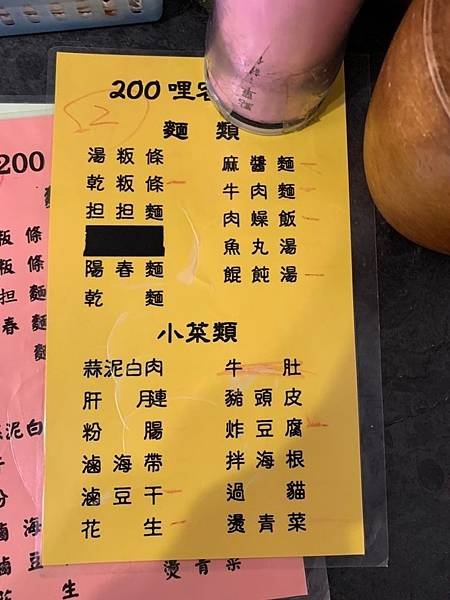 200 哩
2
麵 類
湯 粄 條
乾 粄 條
担 担 麵
陽 春 麵
乾 麵
麻 醬 麵
牛 肉 麵
肉 燥 飯
魚 丸 湯
餛 飩 湯
小菜類
蒜泥白肉
肝 膁
粉 腸
滷 海 帶
滷 豆 干
花 生
牛 肚
豬 頭 皮
炸 豆 腐
拌 海 根
過 貓
燙 青 菜
200
粄 條
粄 條
担 麵
春 麵
麵
泥白
滷 海
滷 豆
生
燙 青 菜